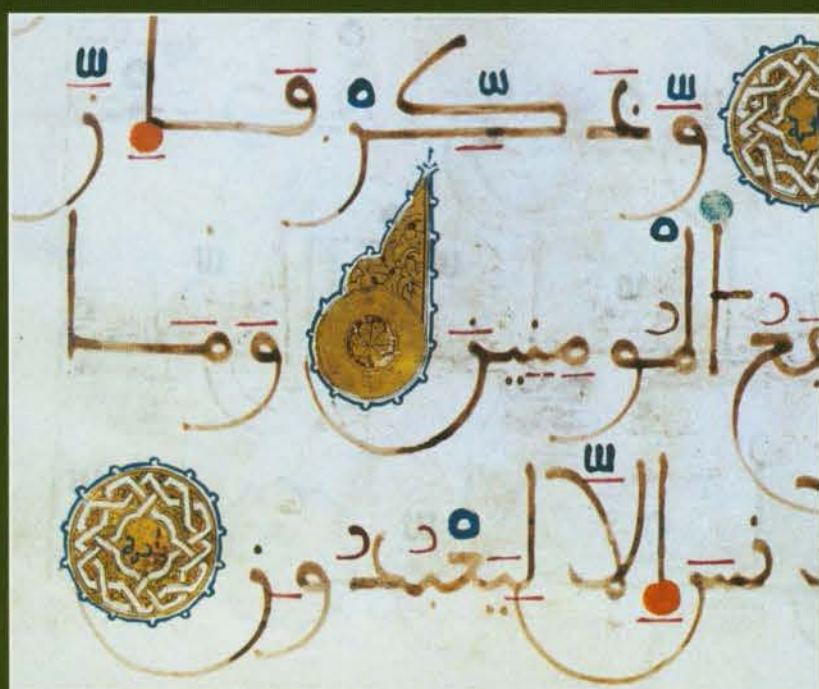 وَّذَكِّرْ فَإِنَّ
ـفَعُ الْمُومِنِينَ وَمَا
نسَ إِلَّا لِيَعْبُدُونِ